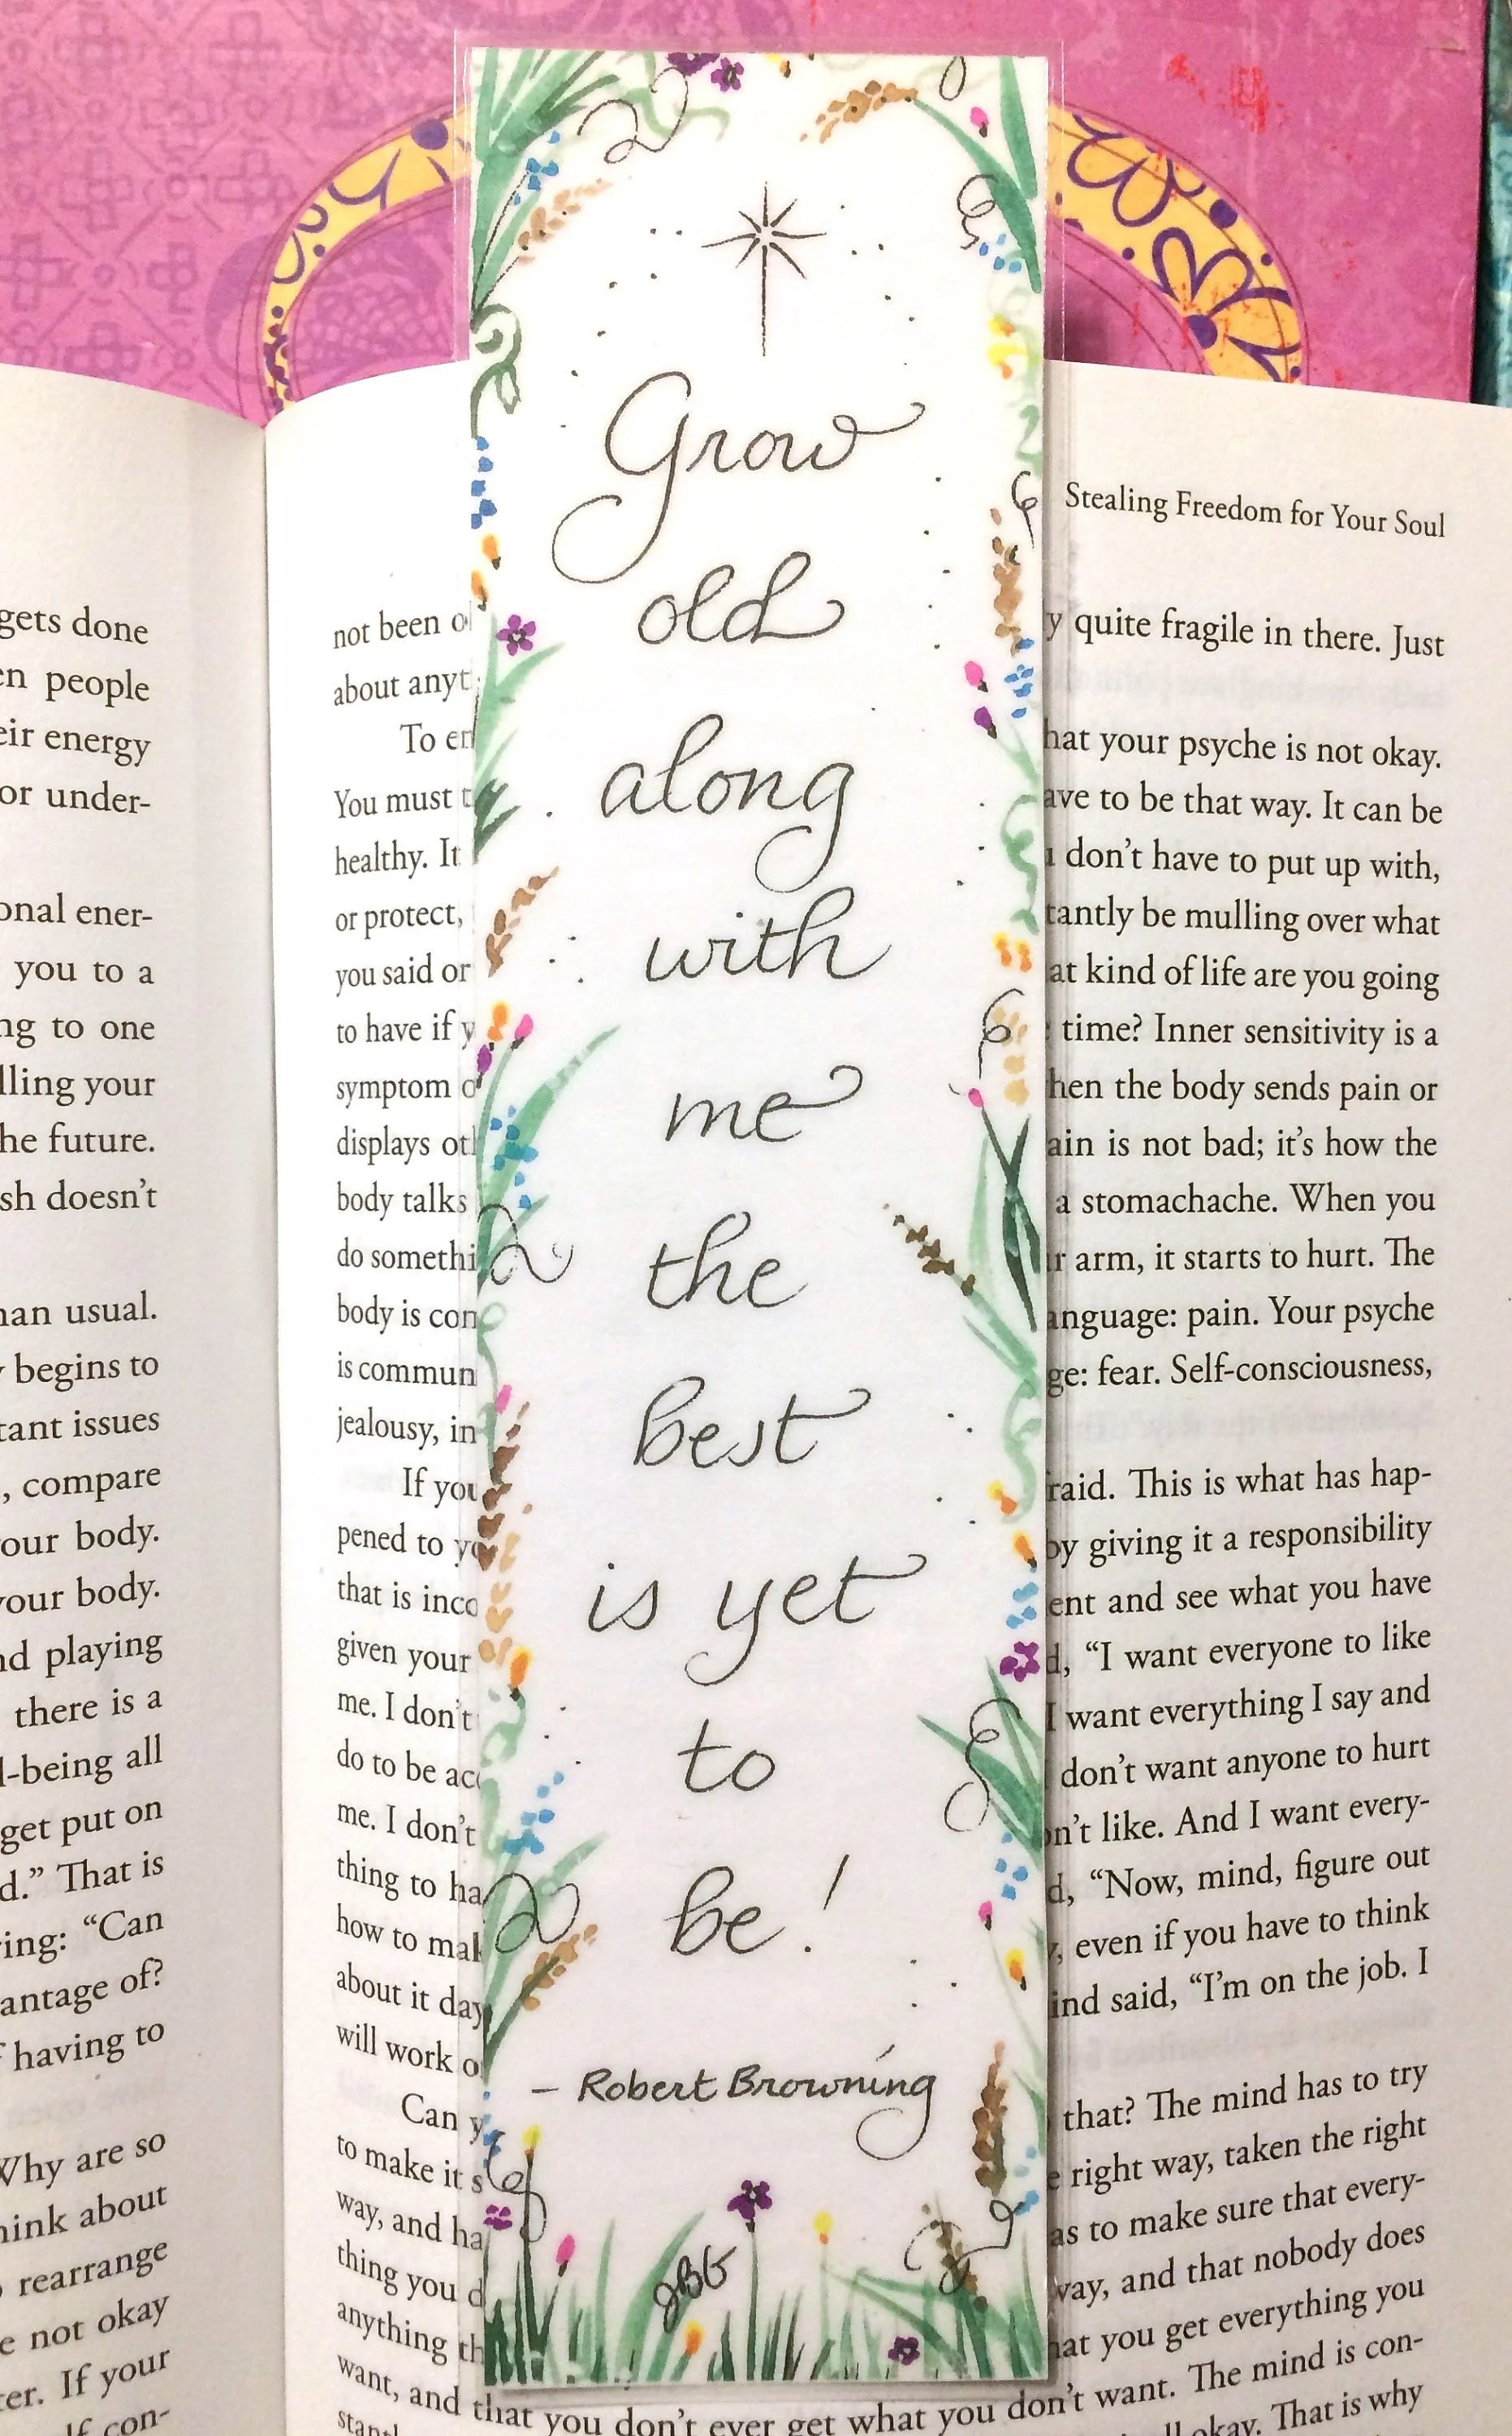 Grow
old
along
with
me
the
best
is yet
to
be!
– Robert Browning
JBG
gets done
people
energy
or under-
ener-
you to a
to one
your
the future.
doesn't
usual.
begins to
issues
, compare
your body.
your body.
playing
there is a
-being all
get put on
That is
"Can
of?
having to
Why are so
think about
rearrange
not okay
If your
con-
Stealing Freedom for Your Soul
not been
quite fragile in there. Just
about
To
that your psyche is not okay.
You must
to be that way. It can be
healthy. It
don't have to put up with,
or protect,
be mulling over what
you said or
at kind of life are you going
to have if
time? Inner sensitivity is a
symptom
the body sends pain or
displays
is not bad; it's how the
body talks
a stomachache. When you
do
arm, it starts to hurt. The
body is
language: pain. Your psyche
is
fear. Self-consciousness,
jealousy,
If you
This is what has hap-
pened to
by giving it a responsibility
that is
and see what you have
given your
"I want everyone to like
me. I don't
I want everything I say and
do to be
don't want anyone to hurt
me. I don't
like. And I want every-
thing to
"Now, mind, figure out
how to
even if you have to think
about it
said, "I'm on the job. I
will work
Can
that? The mind has to try
to make it
right way, taken the right
way, and
to make sure that every-
thing you
way, and that nobody does
anything
that you get everything you
want, and that you don't ever get what you don't want. The mind is con-
okay. That is why